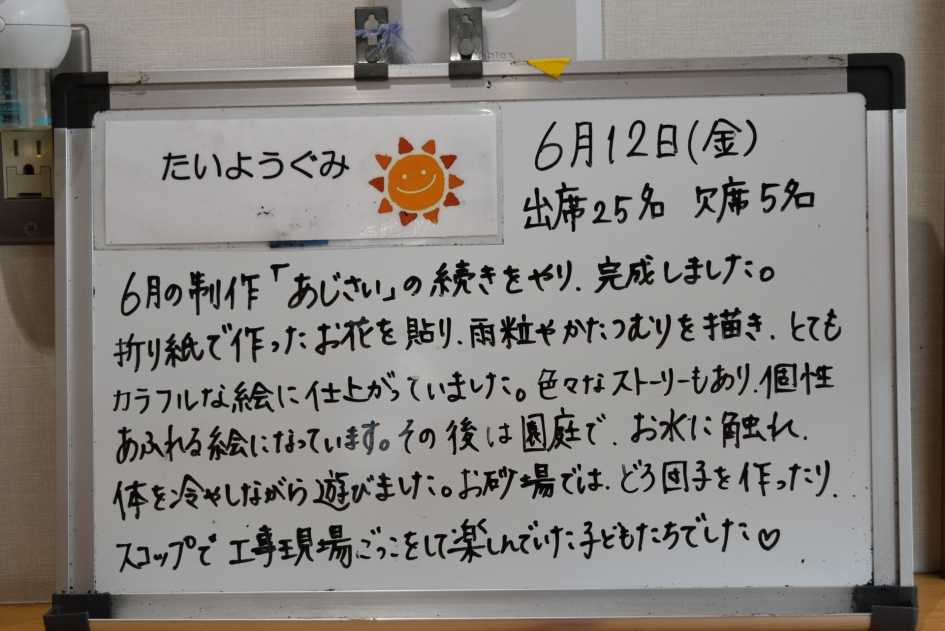 たいようぐみ
6月12日(金)
出席25名 欠席5名
6月の制作「あじさい」の続きをやり、完成しました。
折り紙で作ったお花を貼り、雨粒やかたつむりを描き、とても
カラフルな絵に仕上がっていました。色々なストーリーもあり、個性
あふれる絵になっています。その後は園庭で、お水に触れ、
体を冷やしながら遊びました。お砂場では、どろ団子を作ったり、
スコップで工事現場ごっこをして楽しんでいた子どもたちでした♡